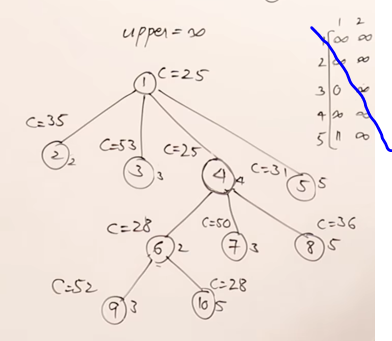 upper = ∞
1 C=25
C=35 2 2
C=53 3 3
C=25 4 4
C=31 5 5
C=28 6 2
C=50 7 3
C=36 8 5
C=52 9 3
C=28 10 5
1 2
∞ ∞
2 ∞ ∞
3 0 ∞
4 ∞ ∞
5 11 ∞